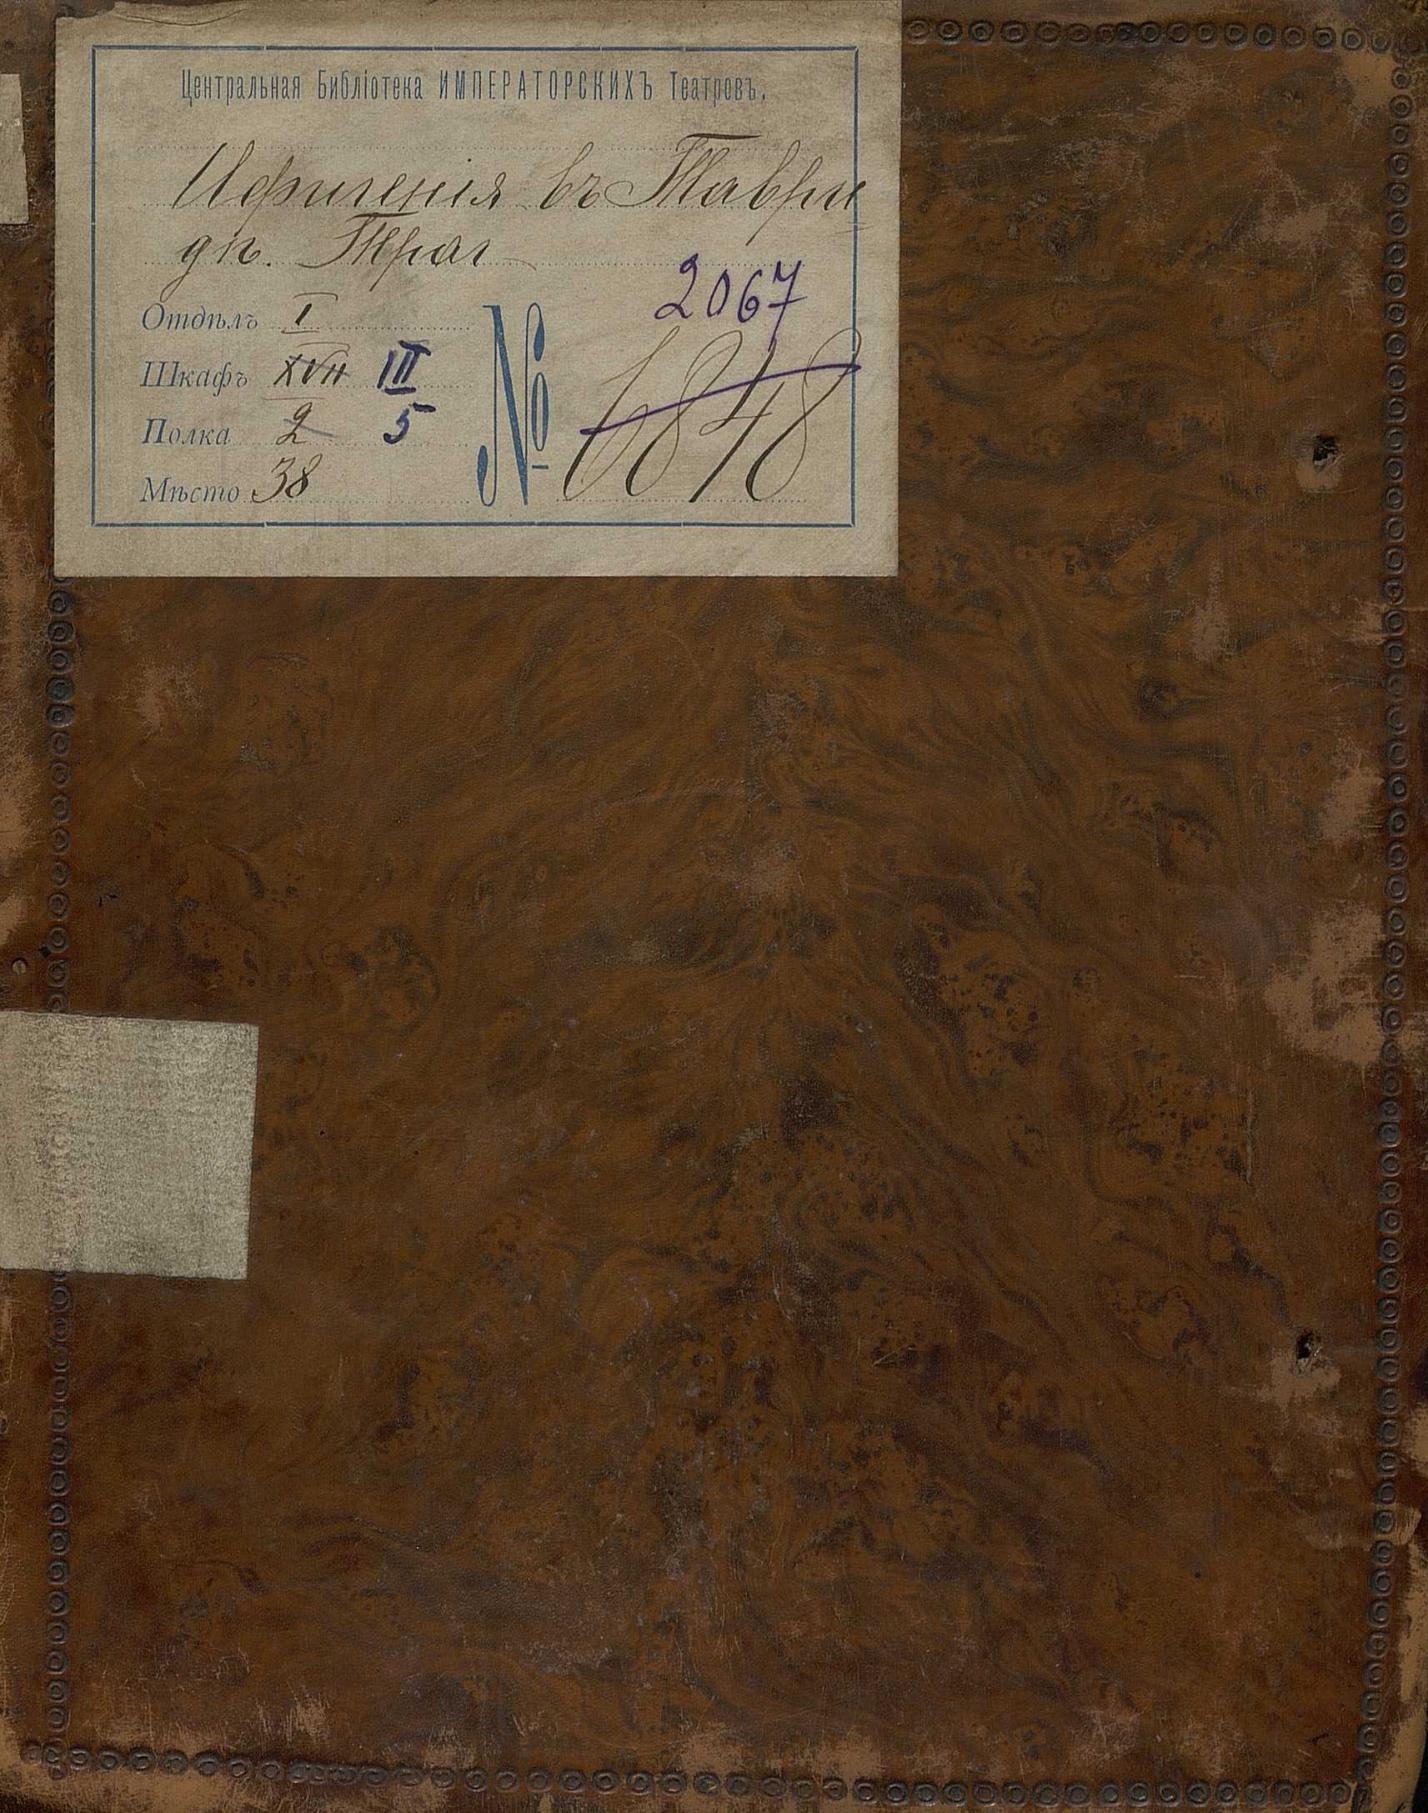 Центральная Библіотека ИМПЕРАТОРСКИХЪ Театровъ.
Ифигенія въ Таври
дѣ. Траг
Отдѣлъ I
Шкафъ XVII III
Полка 2 5
Мѣсто 38
2067
№ 6848